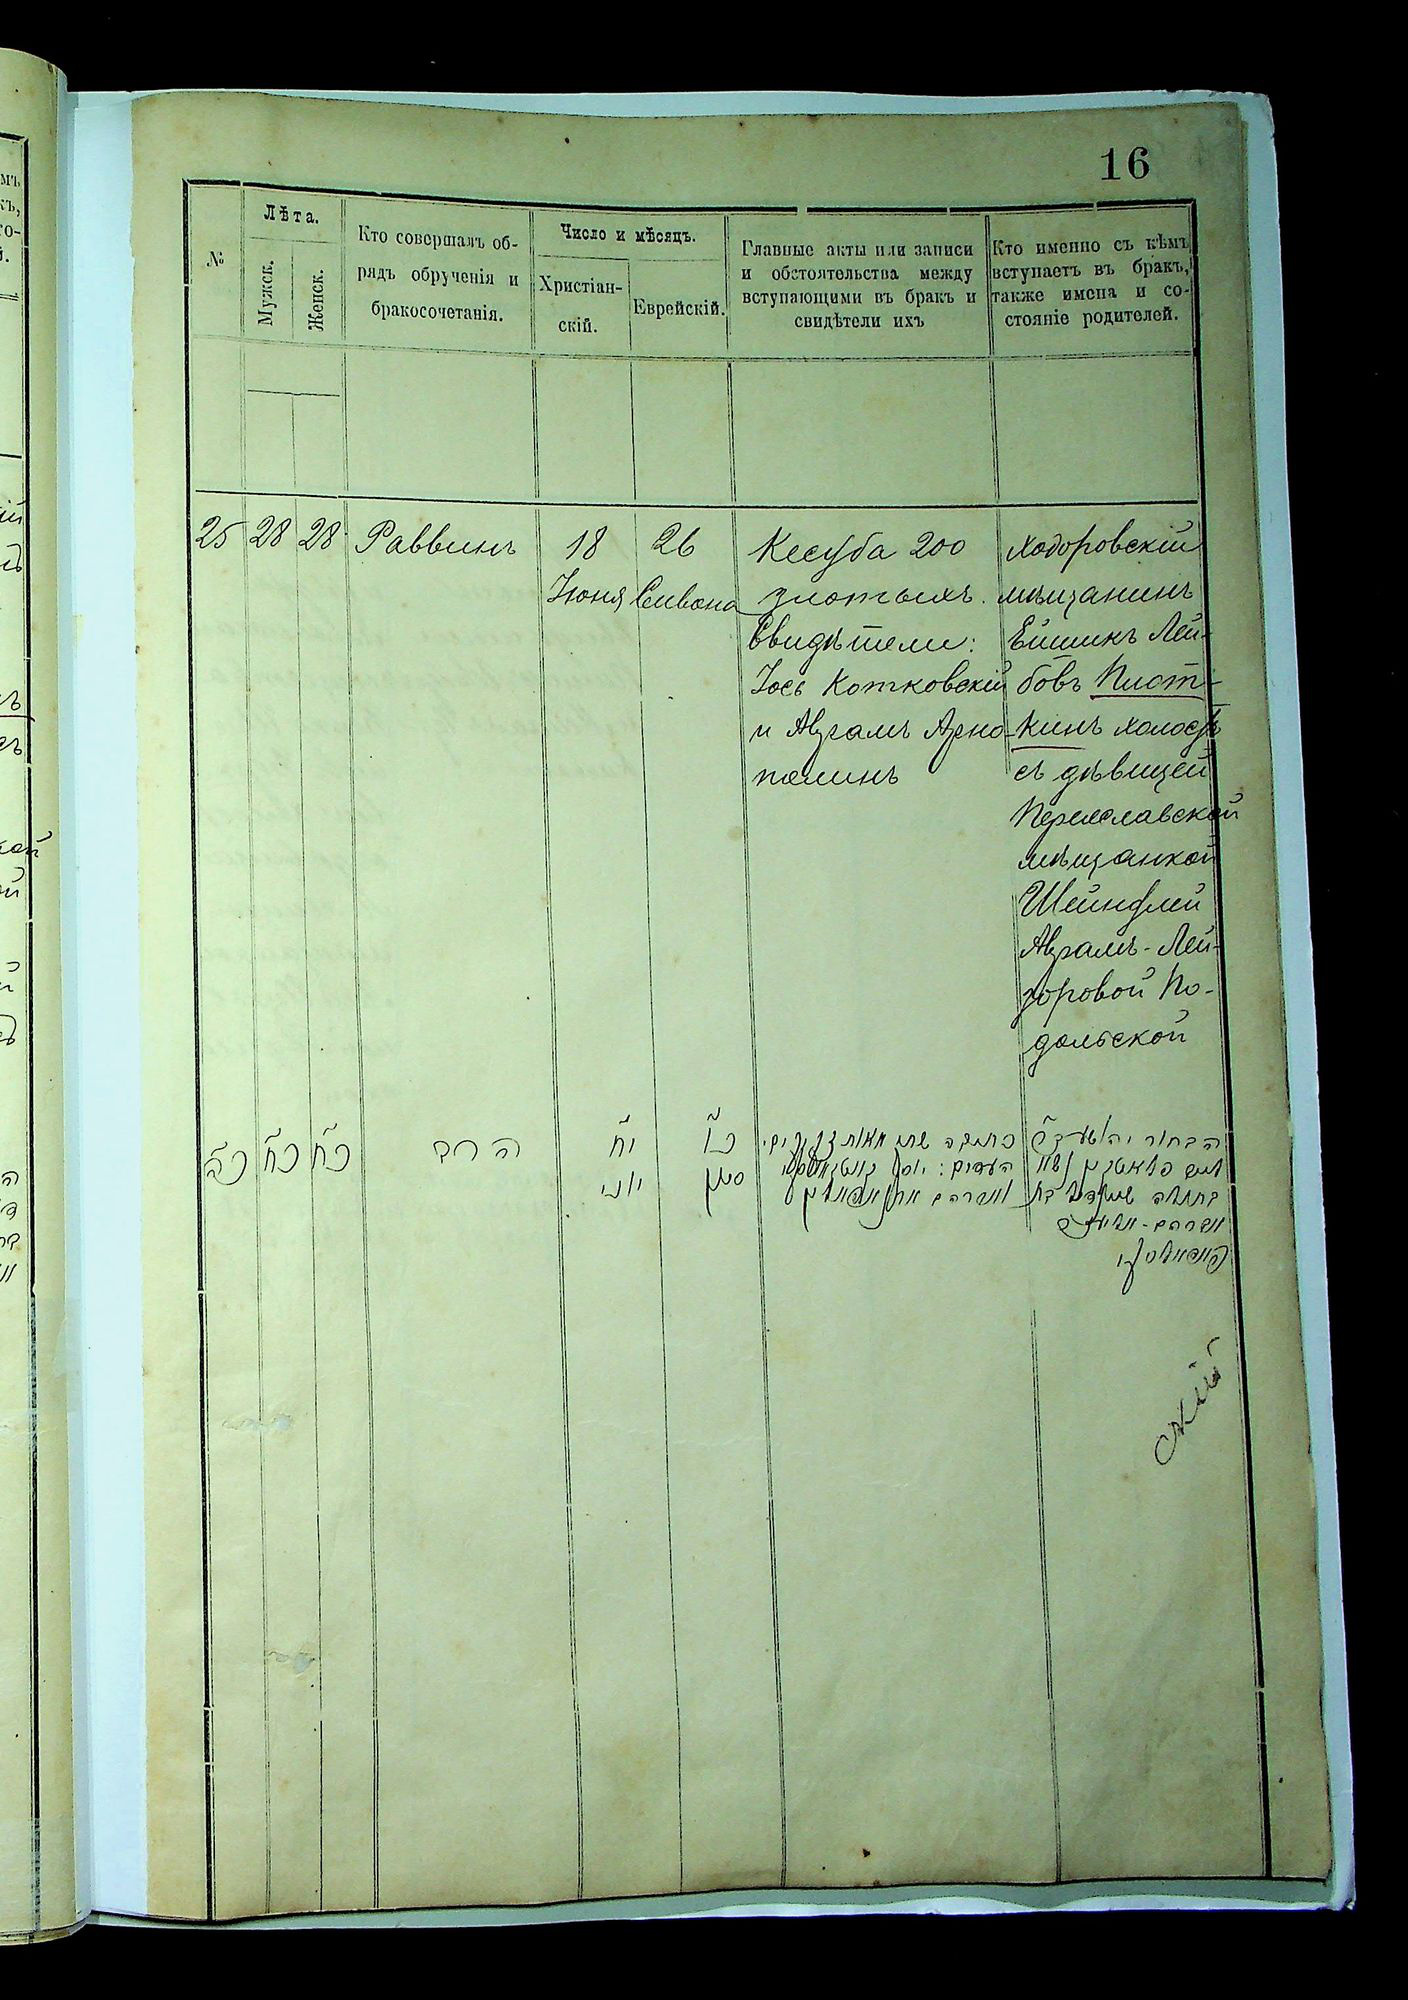 16
№
Лѣта.
Мужск.
Женск.
Кто совершалъ об-
рядъ обрученія и
бракосочетанія.
Число и мѣсяцъ.
Христіан-
скій.
Еврейскій.
Главные акты или записи
и обстоятельства между
вступающими въ бракъ и
свидѣтели ихъ
Кто именно съ кѣмъ
вступаетъ въ бракъ,
также имена и со-
стояніе родителей.
25
28
28
Раввинъ
18
Іюня
26
Сивона
Кесуба 200
злотыхъ.
Свидѣтели:
Іось Котковскій
и Аврамъ Арно-
полинъ
Ходоровскій
мѣщанинъ
Ейшикъ Лей-
бовъ Плот-
кинъ холостъ
съ дѣвицей
Переяславской
мѣщанкой
Шейндлей
Аврамъ-Лей-
зоровой По-
дольской
כה
כח
כח
הרב
יח
יוני
כו
סיון
כתובה שתי מאות זקוקים
העדים: יוסף
ואברהם
הבחור
בתולה שיינדל בת
אברהם-אליעזר
פאדאלסקי
скій